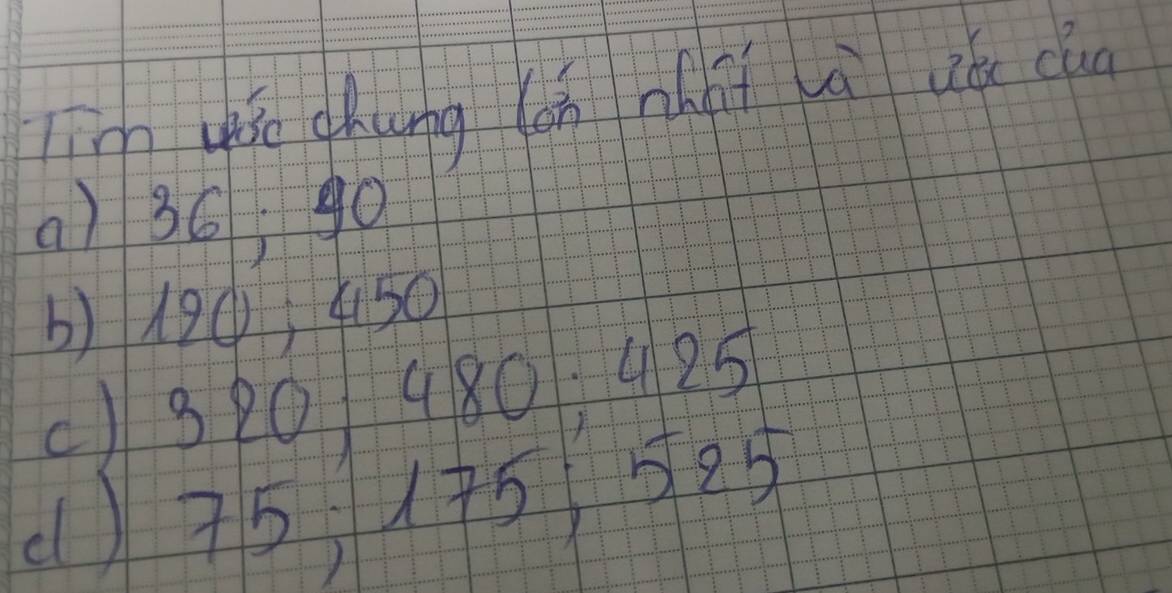 Tìm ước chung lớn nhất và ước của
a) 36; 90
b) 120; 450
c) 320; 480; 425
d) 75; 175; 525